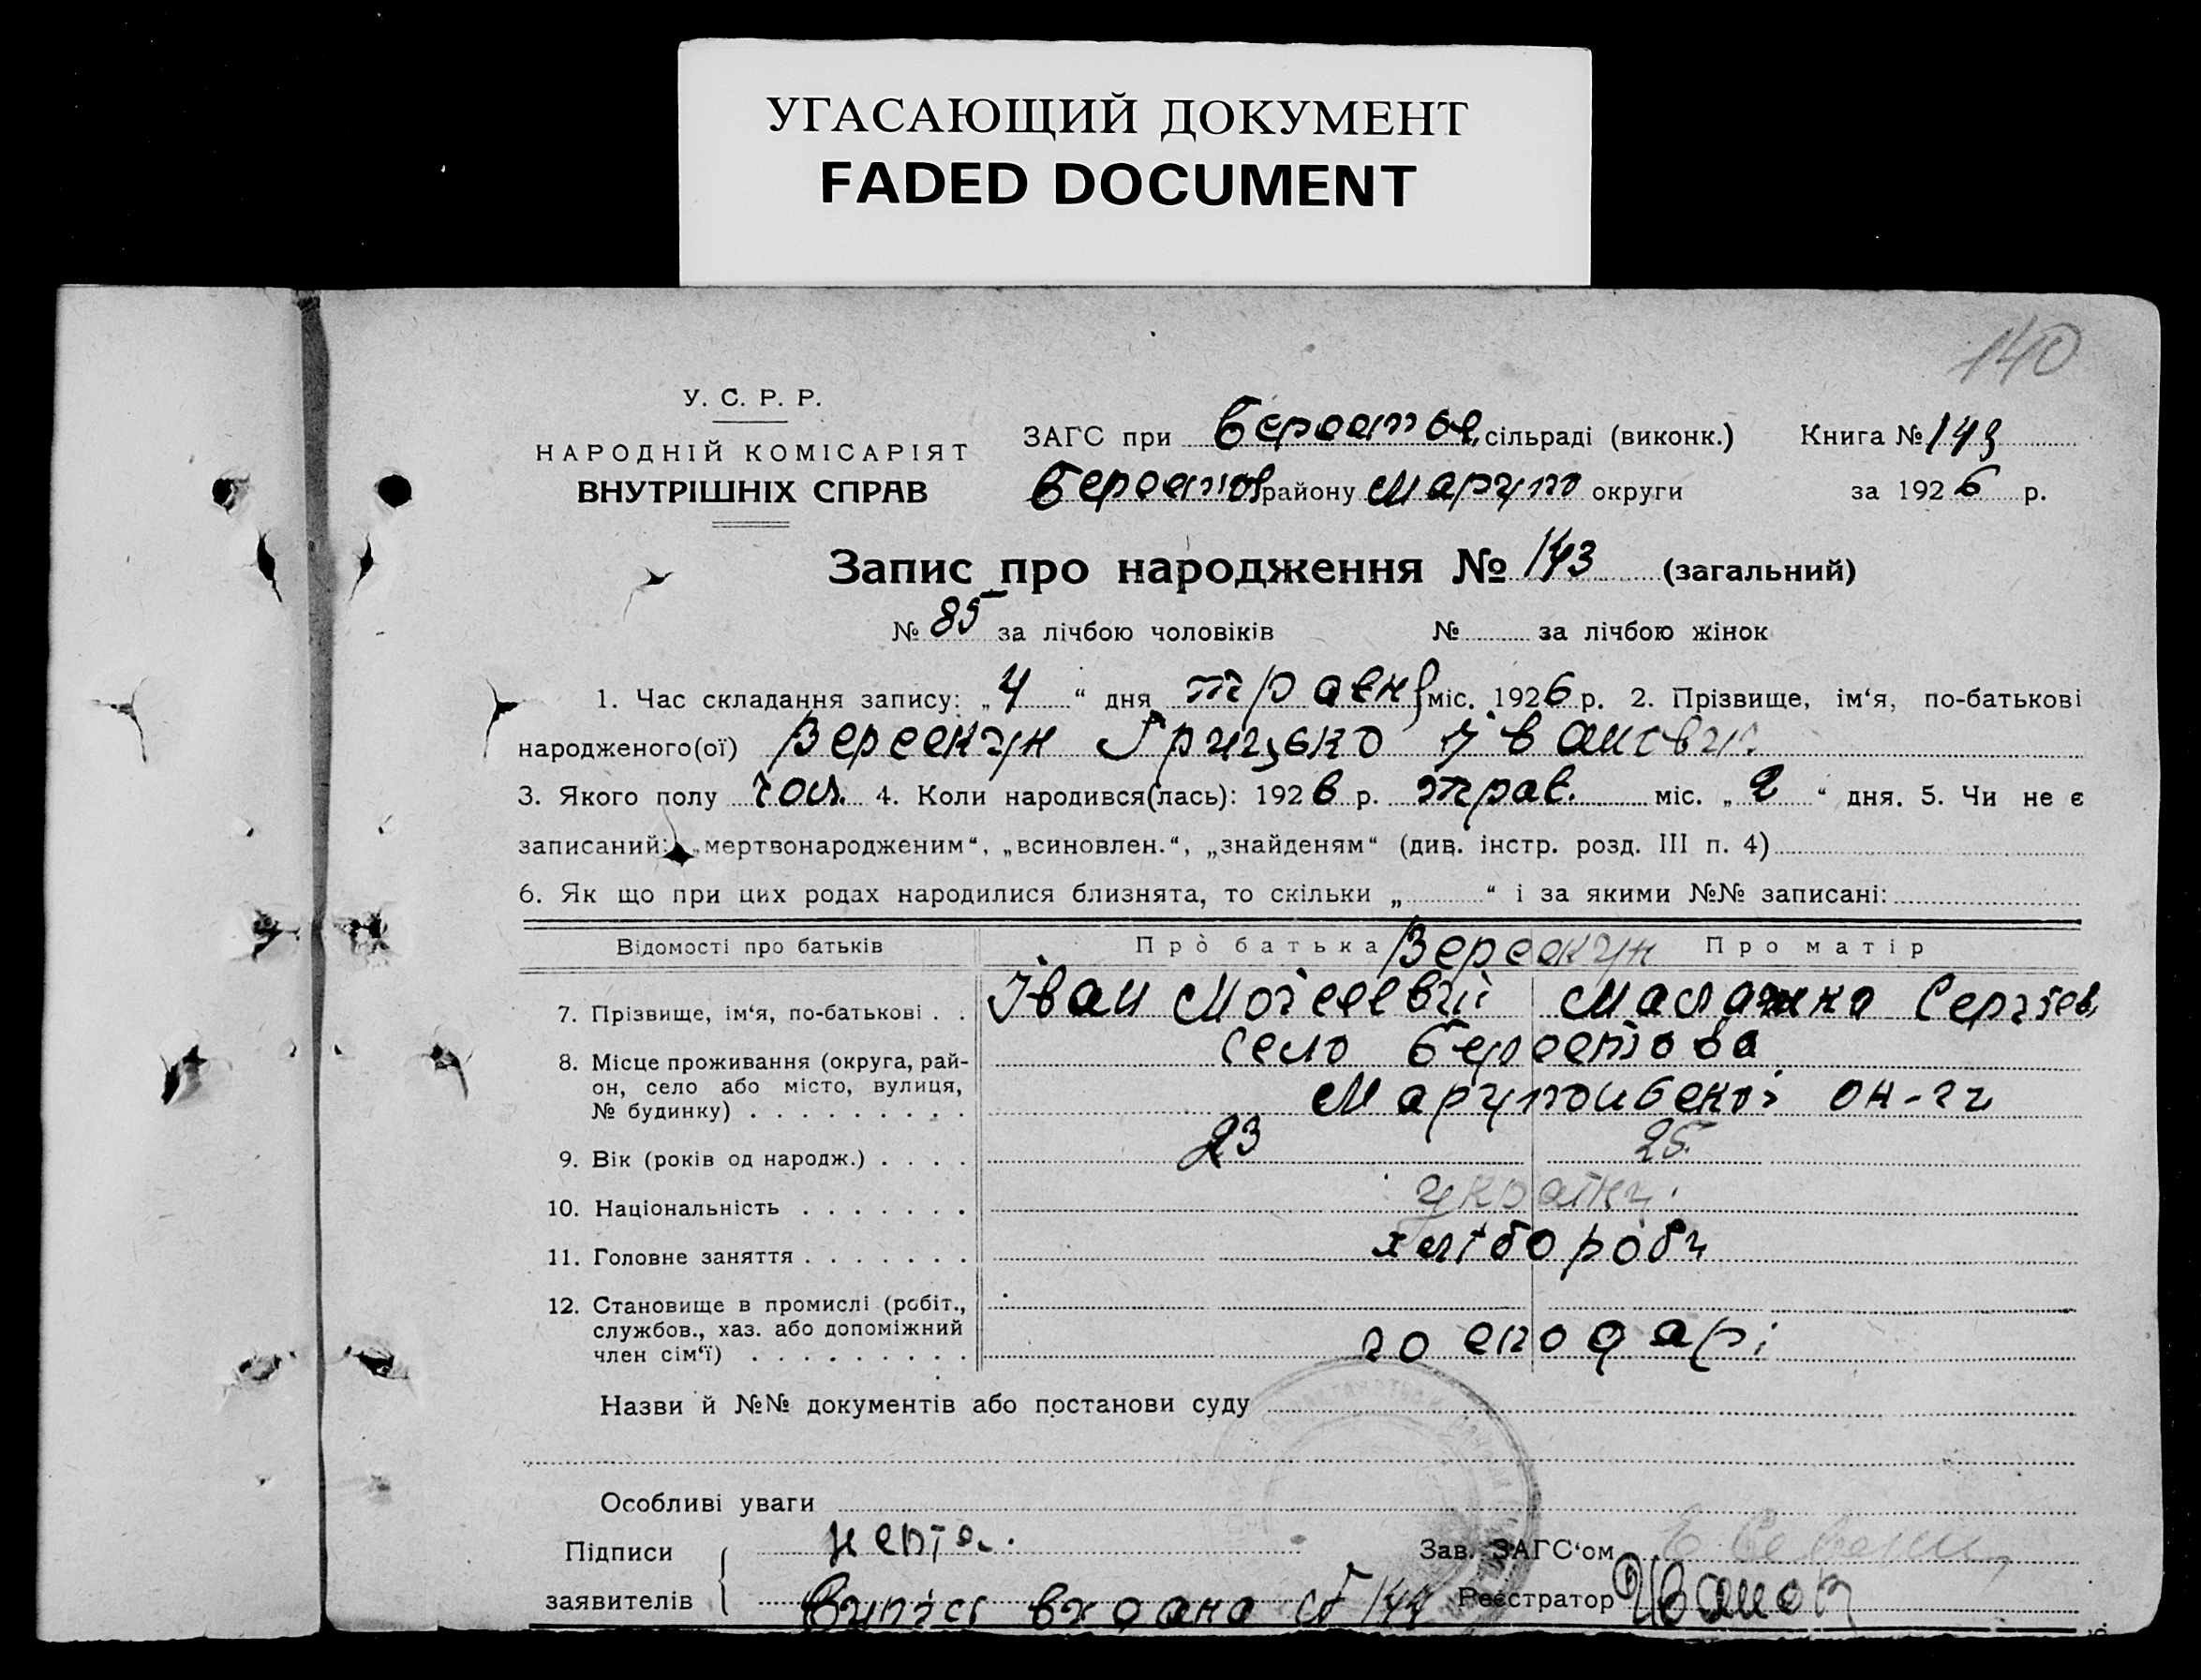 УГАСАЮЩИЙ ДОКУМЕНТ
FADED DOCUMENT
140
У. С. Р. Р.
НАРОДНІЙ КОМІСАРІЯТ
ВНУТРІШНІХ СПРАВ
ЗАГС при Берестов. сільраді (виконк.) Книга № 143
Берестов району Марупо округи за 1926 р.
Запис про народження № 143 (загальний)
№ 85 за лічбою чоловіків № за лічбою жінок
1. Час складання запису: „4“ дня травня міс. 1926 р. 2. Прізвище, ім‘я, по-батькові
народженого(ої) Верескун Грицько Іванович
3. Якого полу чол. 4. Коли народився(лась): 1926 р. трав. міс. „2“ дня. 5. Чи не є
записаний: „мертвонародженим“, „всиновлен.“, „знайденям“ (див. інстр. розд. III п. 4)
6. Як що при цих родах народилися близнята, то скільки „ “ і за якими №№ записані:
Відомості про батьків Про батька Верескун Про матір
7. Прізвище, ім‘я, по-батькові . . Іван Мочсеевич Сергіев
8. Місце проживання (округа, рай-
он, село або місто, вулиця,
№ будинку) . . . . . . . . . село Берестова
Марупольскої ок-ги
9. Вік (років од народж.) . . . . 23 25.
10. Національність . . . . . . . україн.
11. Головне заняття . . . . . . . хлібороби
12. Становище в промислі (робіт.,
службов., хаз. або допоміжний
член сім‘ї) . . . . . . . . . господарі
Назви й №№ документів або постанови суду
Особливі уваги
Підписи
заявителів
Зав. ЗАГС‘ом
Випісь видана
Реєстратор Иванов